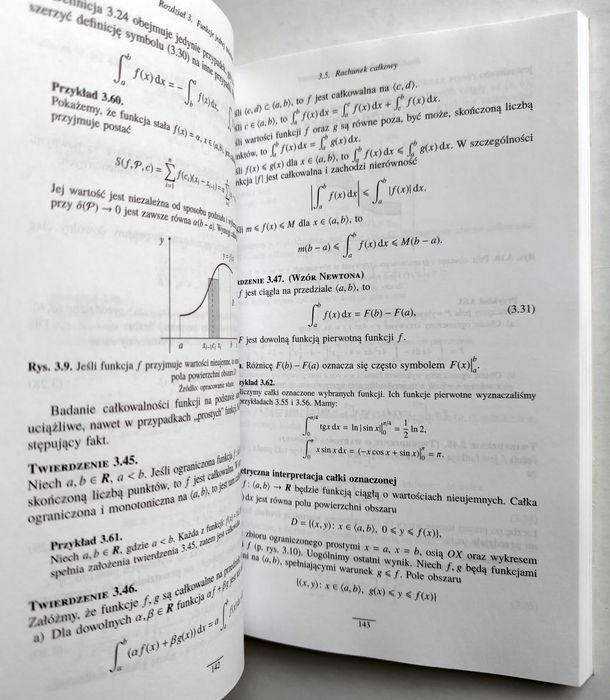 Rozdział 3. Funkcje
Definicja 3.24 obejmuje jedynie
szerzyć definicję symbolu (3.30) na inne
∫_a^b f(x) dx = − ∫_b^a f(x) dx
Przykład 3.60.
Pokażemy, że funkcja stała f(x) = α, x ∈ ⟨a, b⟩
przyjmuje postać
S(f, P, c) = Σ_{i=1}^n f(c_i)(x_i − x_{i−1}) = α
Jej wartość jest niezależna od sposobu podziału
przy δ(P) → 0 jest zawsze równa α(b − a).
y
a x_{i−1} c_i x_i b
Rys. 3.9. Jeśli funkcja f przyjmuje wartości nieujemne, to
pola powierzchni obszaru
Źródło: opracowanie własne
Badanie całkowalności funkcji na podstawie
uciążliwe, nawet w przypadkach „prostych” funkcji.
stępujący fakt.
TWIERDZENIE 3.45.
Niech a, b ∈ R, a < b. Jeśli ograniczona funkcja f
skończoną liczbą punktów, to f jest całkowalna.
ograniczona i monotoniczna na ⟨a, b⟩, to jest
Przykład 3.61.
Niech a, b ∈ R, gdzie a < b. Każda z funkcji:
spełnia założenia twierdzenia 3.45, zatem jest
TWIERDZENIE 3.46.
Załóżmy, że funkcje f, g są całkowalne na
a) Dla dowolnych α, β ∈ R funkcja αf + βg
∫_a^b (αf(x) + βg(x)) dx = α ∫_a^b
142
3.5. Rachunek całkowy
⟨c, d⟩ ⊂ ⟨a, b⟩, to f jest całkowalna na ⟨c, d⟩.
c ∈ ⟨a, b⟩, to ∫_a^b f(x) dx = ∫_a^c f(x) dx + ∫_c^b f(x) dx.
wartości funkcji f oraz g są równe poza, być może, skończoną liczbą
nktów, to ∫_a^b f(x) dx = ∫_a^b g(x) dx.
f(x) ⩽ g(x) dla x ∈ ⟨a, b⟩, to ∫_a^b f(x) dx ⩽ ∫_a^b g(x) dx. W szczególności
nkcja |f| jest całkowalna i zachodzi nierówność
|∫_a^b f(x) dx| ⩽ ∫_a^b |f(x)| dx.
m ⩽ f(x) ⩽ M dla x ∈ ⟨a, b⟩, to
m(b − a) ⩽ ∫_a^b f(x) dx ⩽ M(b − a).
RDZENIE 3.47. (WZÓR NEWTONA)
f jest ciągła na przedziale ⟨a, b⟩, to
∫_a^b f(x) dx = F(b) − F(a), (3.31)
F jest dowolną funkcją pierwotną funkcji f.
Różnicę F(b) − F(a) oznacza się często symbolem F(x)|_a^b.
zykład 3.62.
liczymy całki oznaczone wybranych funkcji. Ich funkcje pierwotne wyznaczaliśmy
przykładach 3.55 i 3.56. Mamy:
∫_0^{π/4} tg x dx = ln |sin x||_0^{π/4} = 1/2 ln 2,
∫_0^π x sin x dx = (−x cos x + sin x)|_0^π = π.
etryczna interpretacja całki oznaczonej
f : ⟨a, b⟩ → R będzie funkcją ciągłą o wartościach nieujemnych. Całka
) dx jest równa polu powierzchni obszaru
D = {(x, y): x ∈ ⟨a, b⟩, 0 ⩽ y ⩽ f(x)},
zbioru ograniczonego prostymi x = a, x = b, osią OX oraz wykresem
f (p. rys. 3.10). Uogólnimy ostatni wynik. Niech f, g będą funkcjami
mi na ⟨a, b⟩, spełniającymi warunek g ⩽ f. Pole obszaru
{(x, y): x ∈ ⟨a, b⟩, g(x) ⩽ y ⩽ f(x)}
143